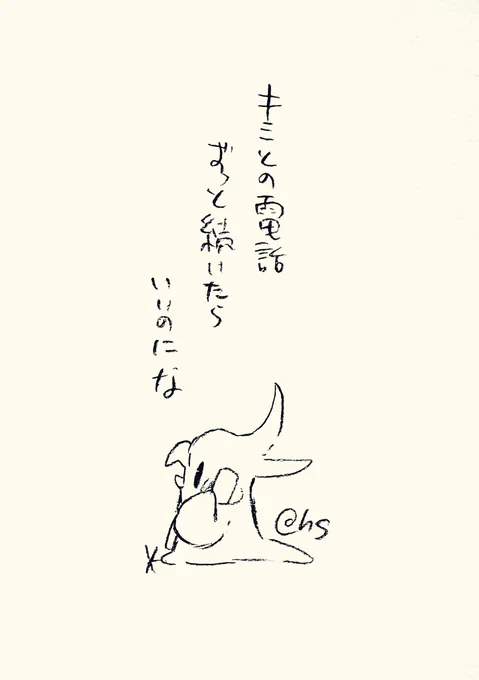 キミとの電話
ずっと続けたら
いいのにな
@hs